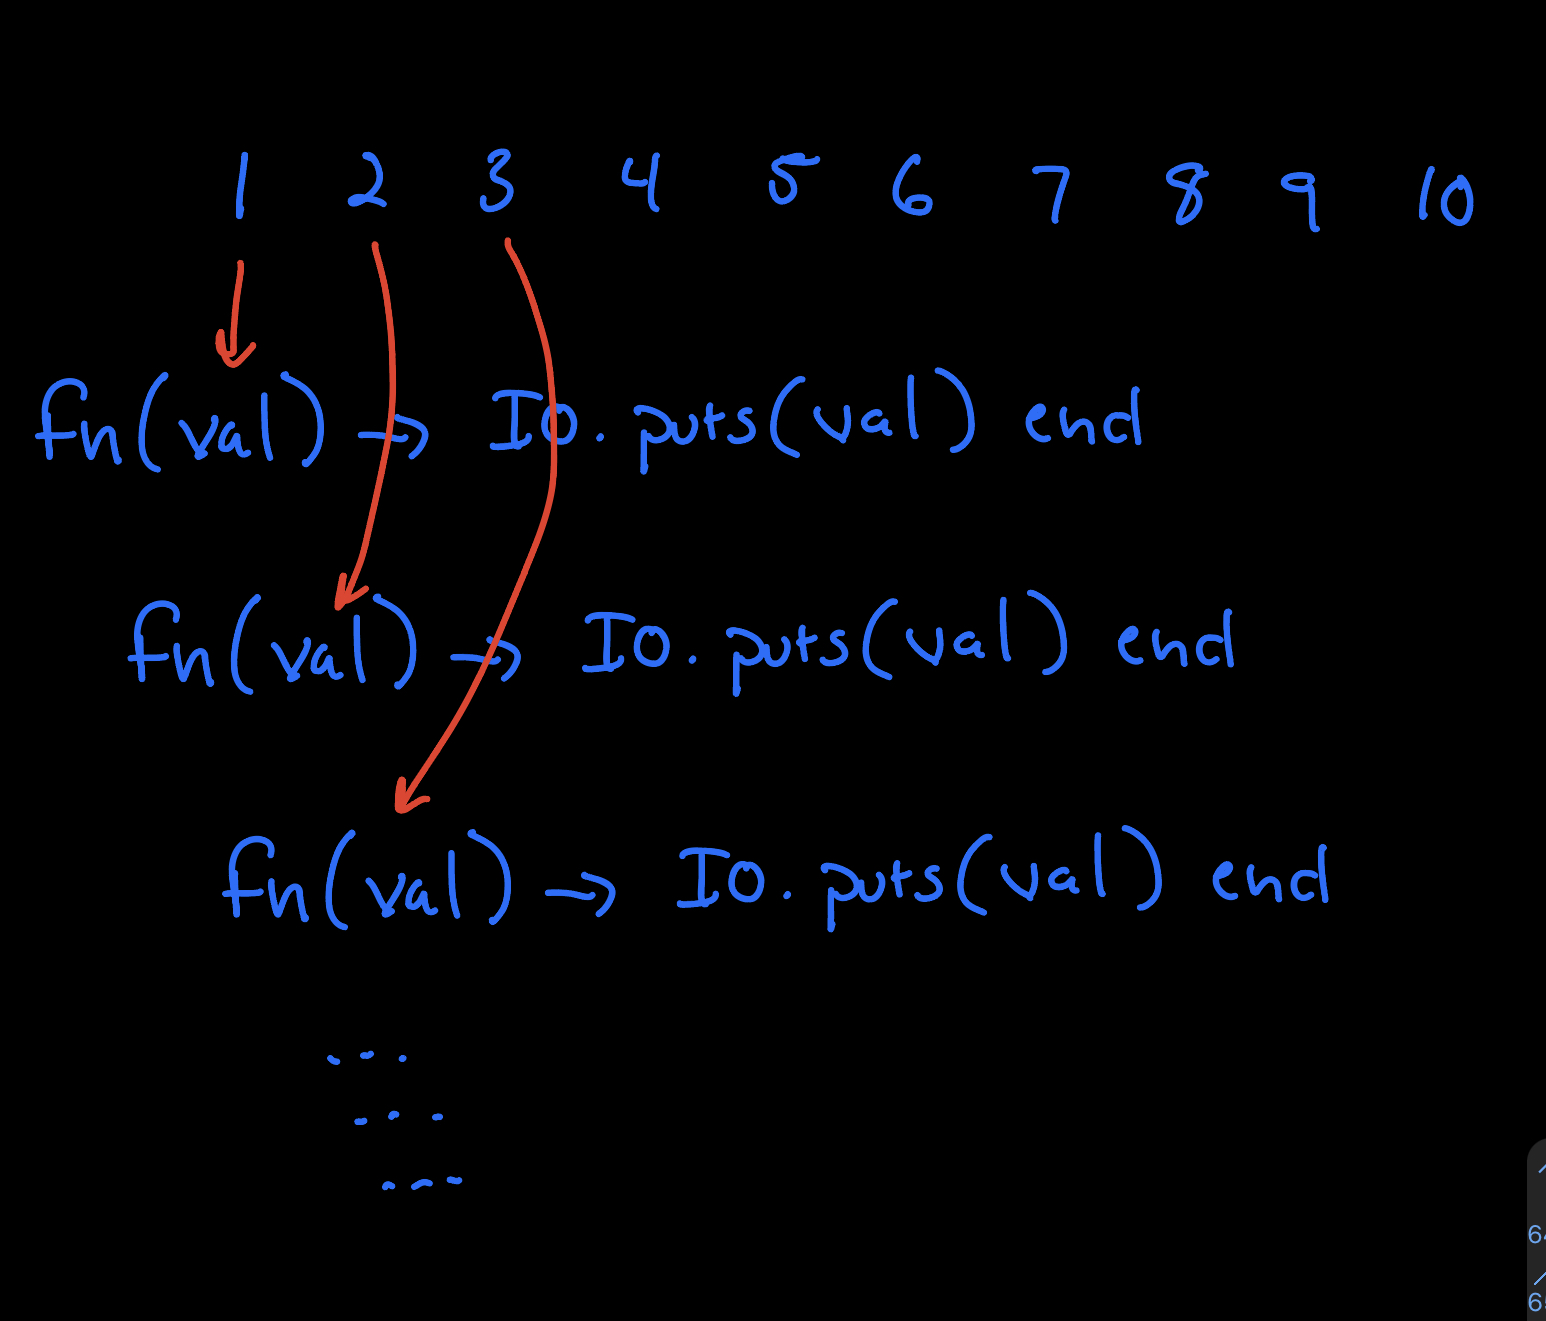 1 2 3 4 5 6 7 8 9 10
fn(val) -> IO.puts(val) end
fn(val) -> IO.puts(val) end
fn(val) -> IO.puts(val) end
...
...
...